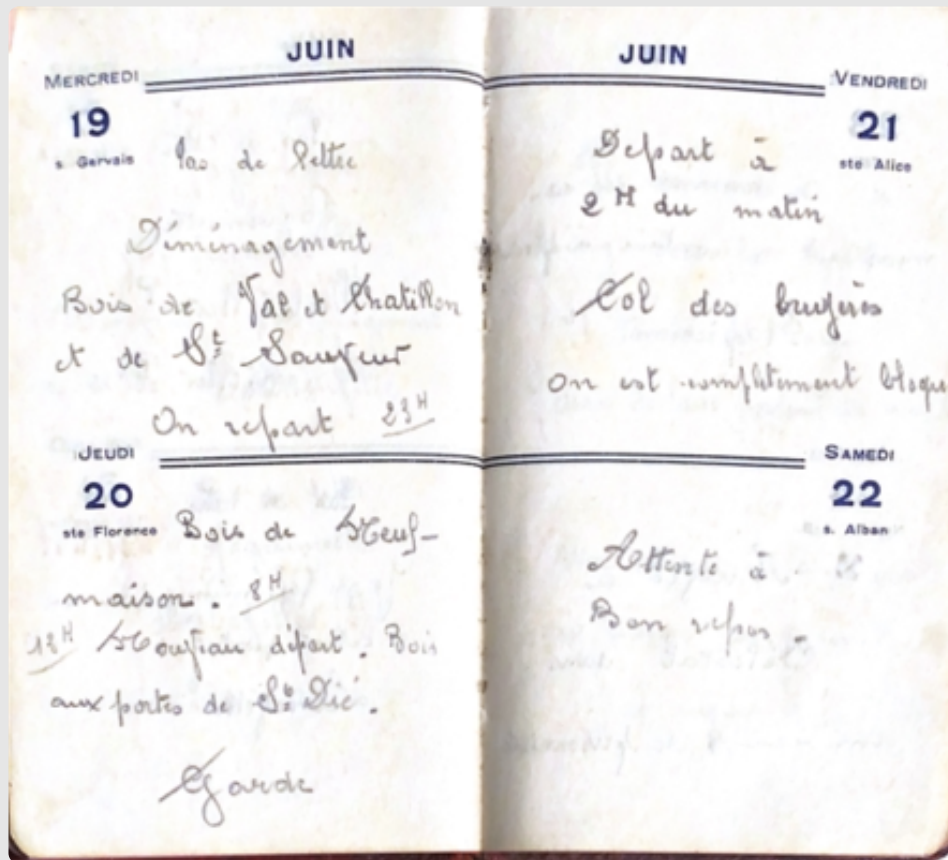 JUIN
MERCREDI
19
s. Gervais
Pas de
Déménagement
Bois de Val et Chatillon
et de St Sauveur
On repart 23H
JEUDI
20
ste Florence
Bois de Neuf-
maison. 8H
18H Nouveau départ. Bois
aux portes de St Dié.
Garde
JUIN
VENDREDI
21
ste Alice
Départ à
2H du matin
Col des bruyères
On est complètement bloqué
SAMEDI
22
s. Alban
Attente à
Bon repos.